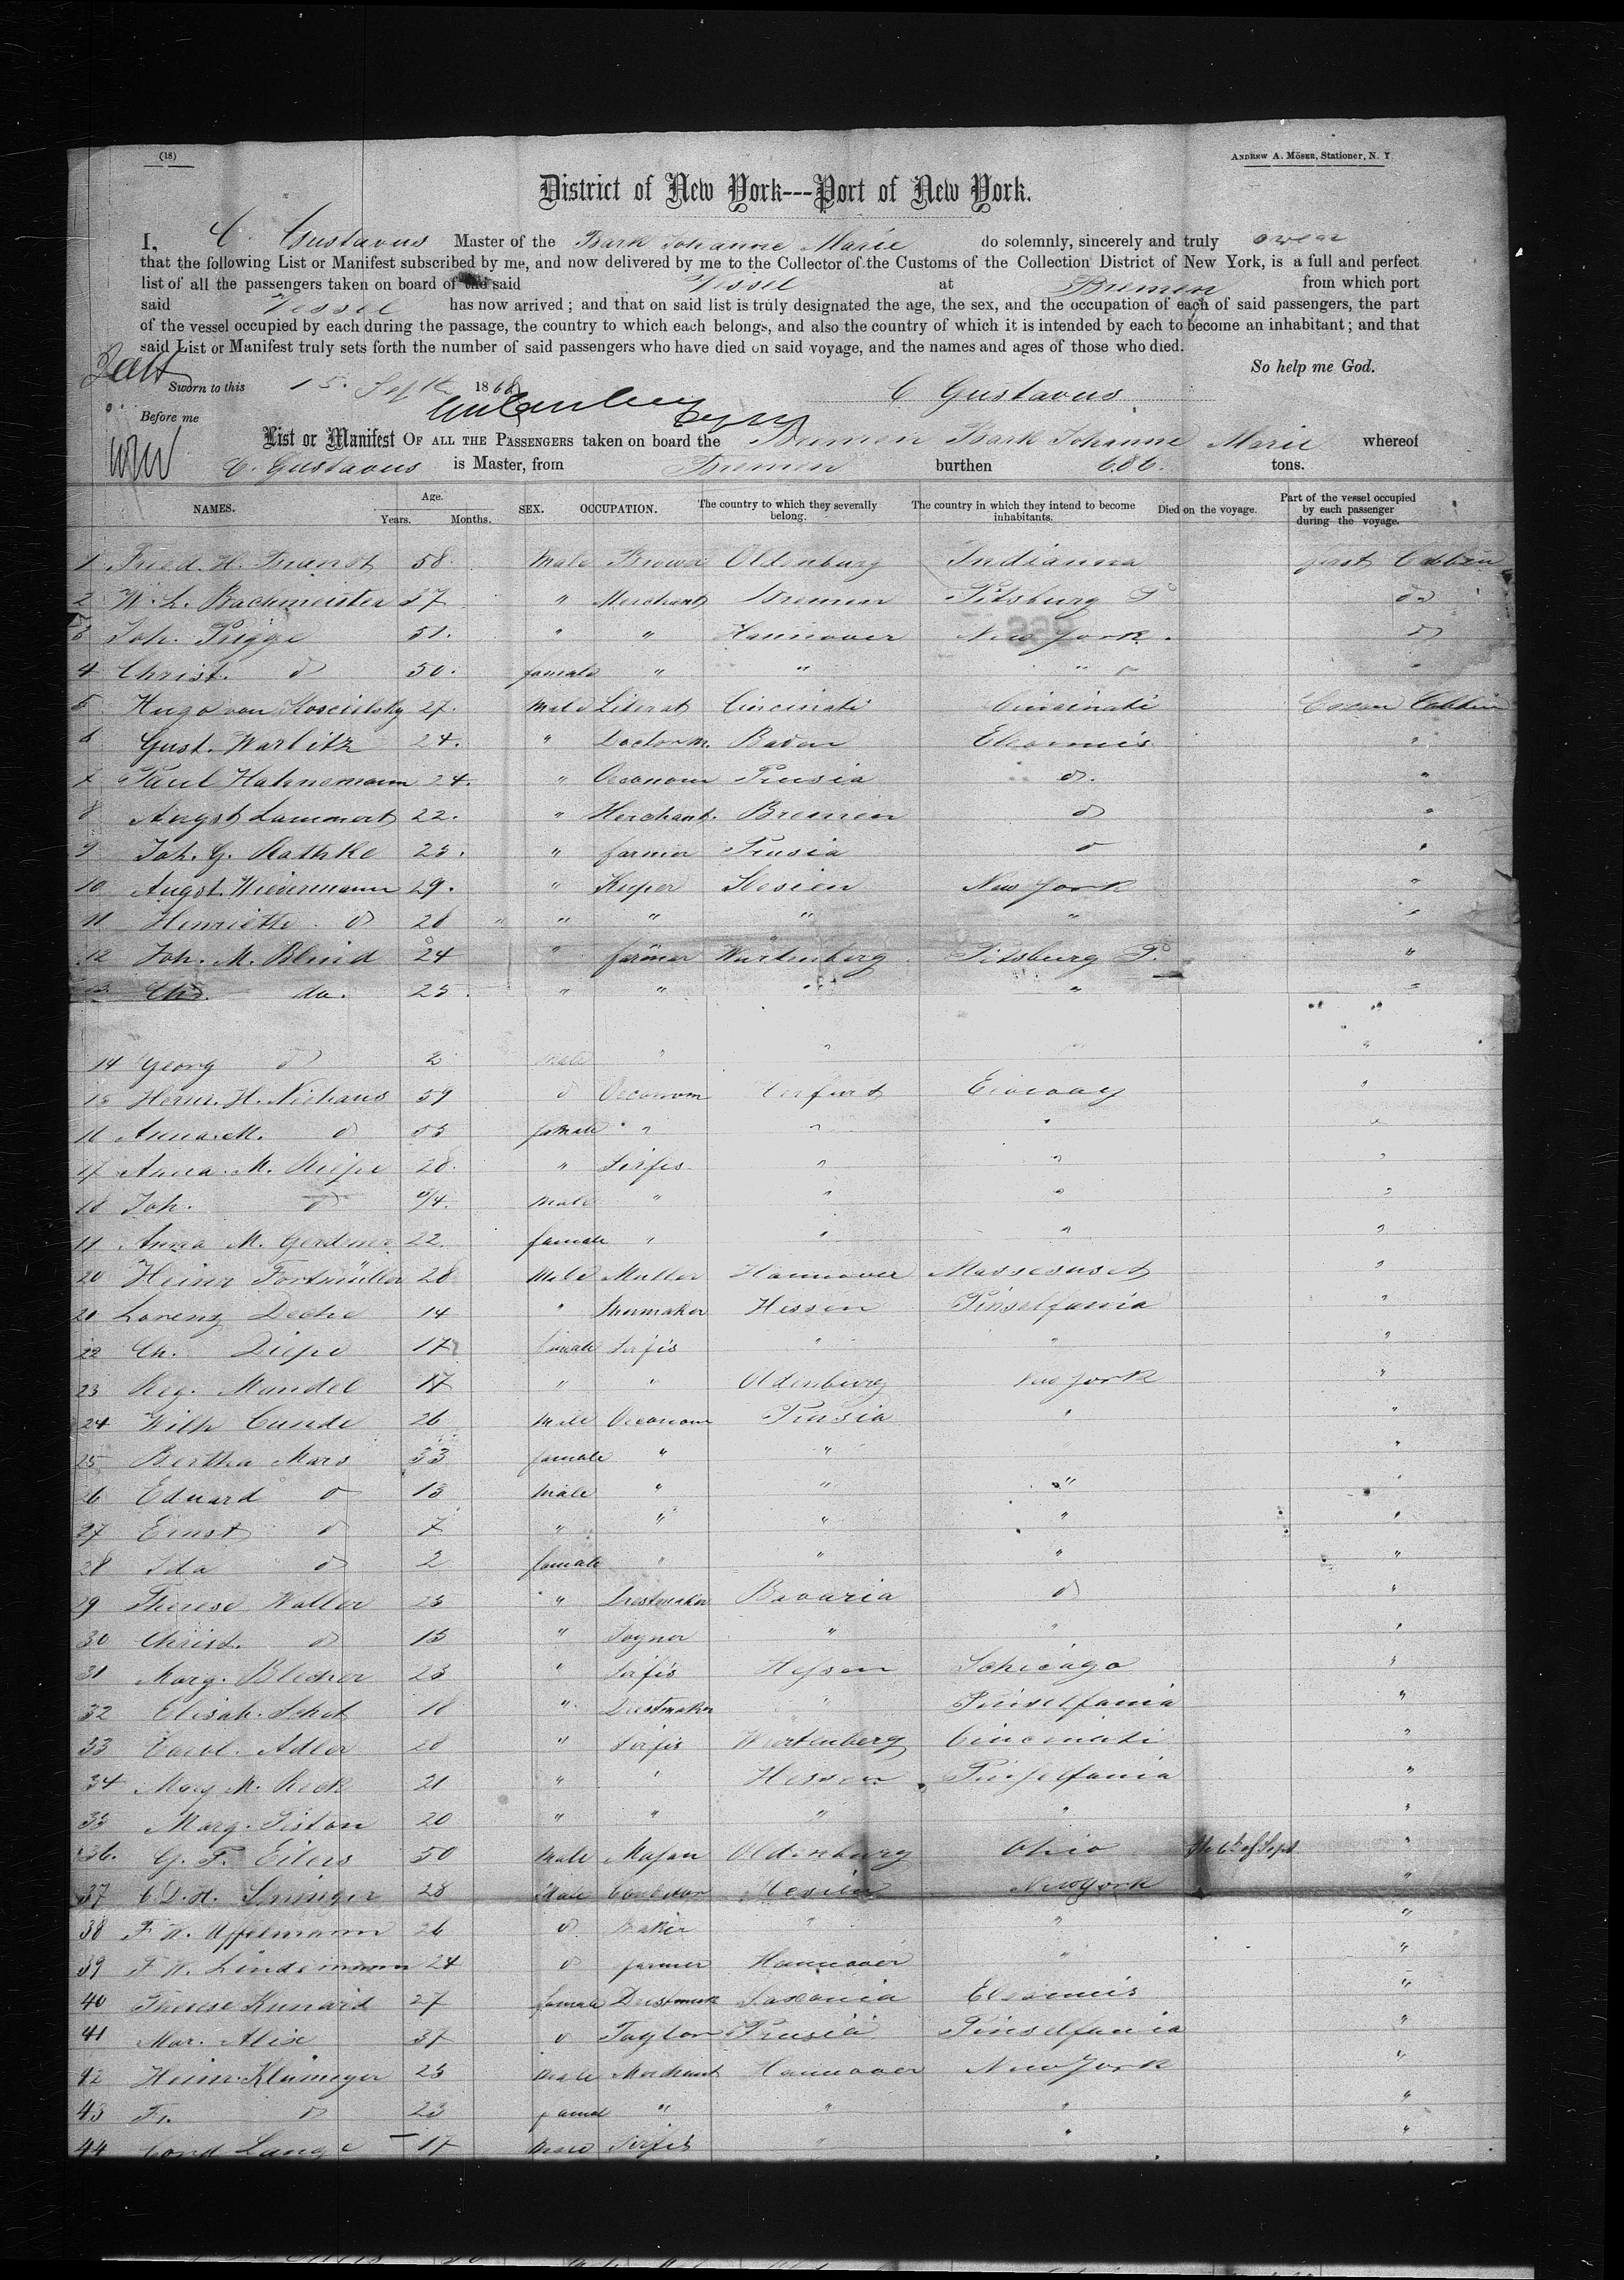 (18)
ANDREW A. MÖSER, Stationer, N. Y
District of New York---Port of New York.
I, C. Gustavus Master of the Bark Johanne Marie do solemnly, sincerely and truly swear
that the following List or Manifest subscribed by me, and now delivered by me to the Collector of the Customs of the Collection District of New York, is a full and perfect
list of all the passengers taken on board of the said Vessel at Bremen from which port
said Vessel has now arrived; and that on said list is truly designated the age, the sex, and the occupation of each of said passengers, the part
of the vessel occupied by each during the passage, the country to which each belongs, and also the country of which it is intended by each to become an inhabitant; and that
said List or Manifest truly sets forth the number of said passengers who have died on said voyage, and the names and ages of those who died.
So help me God.
Sworn to this 15. Sept 1868 C Gustavus
Before me
List or Manifest OF ALL THE PASSENGERS taken on board the Bremen Bark Johanne Marie whereof
C. Gustavus is Master, from Bremen burthen 686. tons.
NAMES. Age. Years. Months. SEX. OCCUPATION. The country to which they severally belong. The country in which they intend to become inhabitants. Died on the voyage. Part of the vessel occupied by each passenger during the voyage.
1 Fried. H. 58. Male Brower Oldenburg Indianna first Cabbin
2 W. L. Bachmeister 37 " Merchant Bremen Pitsburg P do
3 Joh. Prigge 51. " " Hannover New York. do
4 Christ. do 50. female " " " "
5 Hugo von Koscielsky 27. Male Literat Cincinati Cincinati Cabbin
6 Gust. Warbitz 24. " Doctor M. Baden "
7 Paul Hahnemann 24. " Oeconom Prusia do. "
8 Augst Lammert 22. " Merchant. Bremen do "
9 Joh. G. Rathke 23. " farmer Prusia do "
10 Augst. Wiedermann 29. " Keper New York "
11 Henriette do 26 " " " " " "
12 Joh. M. Blind 24 " farmer Wurtenberg Pitsburg P. "
13 Chr. do. 23. " " " " "
14 Georg do 2 male " " " "
15 Herm. H. Niehaus 59 do Oeconom "
16 Anna M. do 53 female " " " "
17 Anna M. Riepe 28. " Sirfis " " "
18 Joh. do 3/4. Male " " " "
19 Anna M. 22. female " " " "
20 Heinr Fortmüller 28 Male Muller Hannover Massesuset "
21 Lorenz Deche 14 " Shurmaker Hessen Pinselfania "
22 Ch. Diepe 17 female Sirfis " " "
23 Reg. Mandel 17 " " Oldenburg New York "
24 Wilh Cunde 26 Male Oeconom Prusia " "
25 Bertha Mars 33 female " " "
26 Eduard do 13 Male " " " "
27 Ernst do 7 " " " " "
28 Ida do 2 female " " " "
29 Therese Walter 23 " Drestmaker Bavaria do "
30 Christ. do 13 " Joyner " " "
31 Marg. Blecher 23 " Sirfis Hessen Schicago "
32 Elisab. Schet 18 " Drestmaker " Pinselfania "
33 Carol. Adler 28 " Sirfis Wurtenberg Cincinati "
34 Marg M. Reck 21 " " Hessen Pinselfania "
35 Marg. Siston 20 " " " " "
36. G. F. Eilers 50 Male Masan Oldenburg Ohio the 6th of Sept "
37 C. D. H. 28 Male New York "
38 F. W. Uffelmann 26 do Baker " " "
39 F. W. Lindemann 24 do farmer Hannover " "
40 Therese Kunard 27 female Drestmak Saxonia "
41 Mar. Alix 37 do Taylor Prusia Pinselfania "
42 Heinr. Kleimeyer 23 Male Merchant Hannover New York "
43 Fr. do 23 famel " " " "
44 Cord Lange 17 Male Sirfis " " "